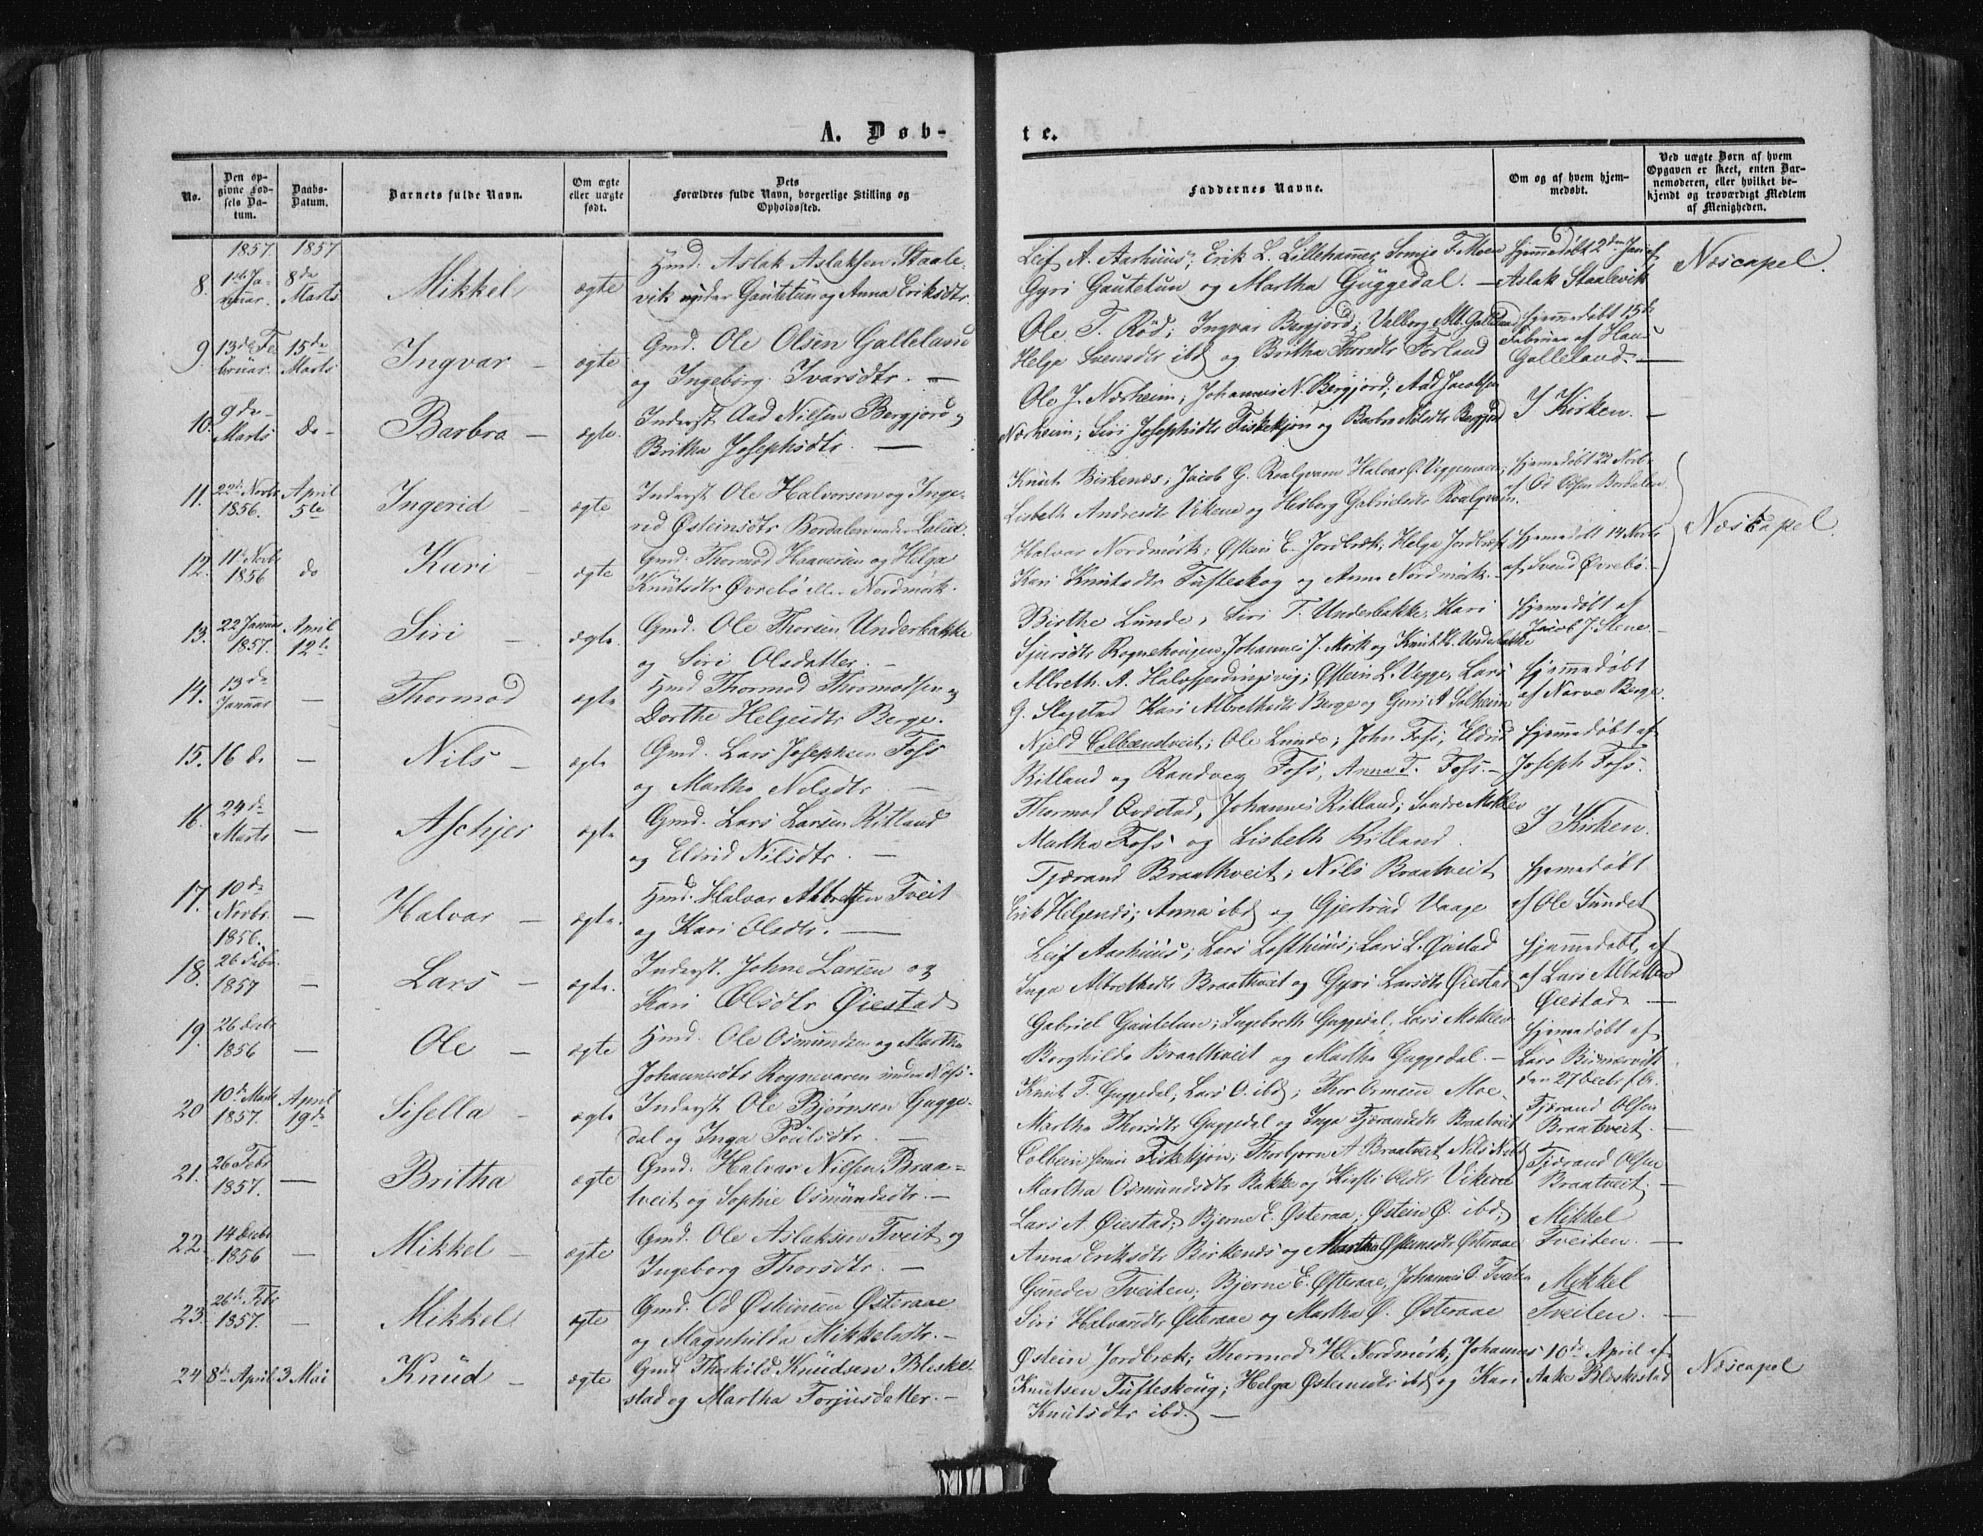 A. Døb-
te.
No.
Den op-
givne Fød-
sels Da-
tum.
Daabs-
Datum.
Barnets fulde Navn.
Om ægte
eller uægte
født.
Dets
Forældres fulde Navn, borgerlige Stilling og
Opholdssted.
Faddernes Navne.
Om og af hvem hjem-
medøbt.
Ved uægte Børn af hvem
Opgaven er skeet, enten Bar-
nemoderen, eller hvilket be-
kjendt og troværdigt Medlem
af Menigheden.
1857. 1857
8. 1ste Ja-
nuar. 8de
Marts Mikkel ægte Hmd. Aslak Aslaksen Staale-
vik under Gautetun og Anna Eriksdtr.
Leif A. Aarhuus; Erik L. Lillehamer, F. Moen
Gyri Gautetun og Martha Guggedal. —
Hjemmedøbt 2den Jan. af
Aslak Staalevik
Næscapel.
9. 13de Fe-
bruar. 15de
Marts Ingvar — ægte Gmd. Ole Olsen Galleland
og Ingeborg Ivarsdtr. —
Ole T. Rød; Ingvar Bergjord; Valborg Galleland
Helge Svensdtr ibd og Britha Thorsdtr Førland
Hjemmedøbt 15de
Februar af Hans
Galleland. —
10. 9de
Marts do — Barbra — ægte. Inderst Aad Nilsen Bergjord og
Britha Josephsdtr. —
Ole J. Nærheim; Johannes N. Bergjord; Aad Jacobsen
Nærheim; Siri Josephsdtr Fiskekjøn og Barbra Nilsdtr Bergjord
I Kirken. —
11. 22de Novbr
1856. April
5te Ingerid — ægte Inderst Ole Halvorsen og Inge-
rid Østeinsdtr Bordalen under
Knut Birkenæs; Jacob G. Roalqvam Halvar Ø. Veggemoen;
Lisbeth Andersdtr Viken og Herborg Gabrielsdtr Roalqvam.
Hjemmedøbt 22 Novb.
af Od Olsen Bordalen
Næscapel.
12. 11te Novbr
1856 do Kari — ægte Gmd. Thormod Haaversen og Helga
Knutsdtr Øvrebø Nordmørk.
Halvar Nordmørk; Østein E. Jordbræk; Helga Jordbræk
Kari Knutsdtr Tufteskog og Anna Nordmørk. —
Hjemmedøbt 14 Novbr
af Svend Øvrebø. —
13. 22 Januar
1857. April
12te Siri — ægte. Gmd. Ole Thorsen Underbakke
og Siri Olsdatter. —
Birthe Lunde, Siri T. Underbakke, Kari
Sjursdtr Rognehougen, Johannes J. Mork og Knut H. Underbakke
Hjemmedøbt af
Jacob J. Stene —
14. 13de
Januar — Thormod ægte Hmd Thormod Thormodsen og
Dorthe Helgesdtr Berge.
Albreth A. Halvfjerdingsvig; Østein L. Vegge, Lars
G. Slagstad Kari Albrethsdtr Berge og Guri A Solheim
Hjemmedøbt
af Narve Berge.
15. 16 do — Nils — ægte Gmd. Lars Josephsen Foss
og Martha Nilsdtr. —
Njeld Colbenstveit; Ole Lunde; John Foss; Eldrid
Ritland og Randveg Foss, Anna T. Foss. —
Hjemmedøbt af
Joseph Foss.
16. 24de
Marts — Aschjer ægte Gmd. Lars Larsen Ritland
og Eldrid Nilsdtr. —
Thormod Qvæstad, Johannes Ritland; Sondre Moklev
Martha Foss og Lisbeth Ritland.
I Kirken.
17. 10de
Novbr.
1856. — Halvar — ægte. Hmd. Halvar Albretsen Tveit
og Kari Olsdtr. —
Tjærand Braathveit; Nils Braatveit
Erik Helgenæs; Anna ibd og Gjertrud Vaage
Hjemmedøbt
af Ole Sundet
18. 26 Febr.
1857 — Lars — ægte. Inderst. Johne Larsen og
Kari Olsdtr Øiestad
Leif Aarhuus; Lars Lofthuus; Lars L. Øiestad
Inga Albrethsdtr Braathveit og Gyri Larsdtr Øiestad
Hjemmedøbt af
af Lars Albretsen
Øiestad. —
19. 26 Decbr
1856 — Ole — ægte Hmd. Ole Osmundsen og Martha
Johannesdtr Rognevaren under Foss.
Gabriel Gautetun; Ingebreth Guggedal, Lars Moklev
Borghilda Braathveit og Martha Guggedal. —
Hjemmedøbt af
Lars
den 27 Decbr f. A.
20 10de Marts
1857. April
19de Sisella — ægte Inderst Ole Bjørnsen Gugge-
dal og Inga Poulsdtr. —
Knut T. Guggedal, Lars O. ibd; Thor Ormsen Moe-
Martha Thorsdtr Guggedal og Inga Tjærandsdtr Braatveit
Tjærand Olsen
Braatveit. —
21. 26 Febr
1857. — Britha — ægte Gmd. Halvar Nilsen Braa-
tveit og Sophie Osmundsdtr. —
Colbein Fiskekjøn; Thorbjørn A Braatveit Nils N. ibd
Martha Osmundsdtr Bakke og Kirsti Olsdtr Viken
Tjærand Olsen
Braatveit. —
22. 14 Decbr
1856 — Mikkel — ægte Gmd. Ole Aslaksen Tveit og
Ingeborg Thorsdtr. —
Lars A. Øiestad; Bjerne E. Østeraa; Østein Ø. ibd;
Anna Eriksdtr Birkenæs og Martha Østensdtr Østeraae
Mikkel
Tveiten. —
23. 26de Febr
1857. — Mikkel ægte Gmd. Od Østeinsen Østeraae
og Magnhilda Mikkelsdtr. —
Gunder Tveiten; Bjerne E. Østeraae, Johannes O. Tveiten
Siri Halvarsdtr Østeraae og Martha Ø. Østeraae
Mikkel
Tveiten. —
24 8de April 3 Mai Knud — ægte Gmd Thorkild Knudsen Bleske-
stad og Martha Torjusdatter. —
Østein Jordbræk; Thormod H. Nordmørk, Johannes
Knutsen Tufteskoug; Helga Østensdtr ibd og Kari
Knutsdtr ibd. —
10de April af
Aake Bleskestad
Næscapel